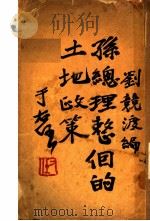 劉競渡編
孫總理整個的
土地政策
于右任